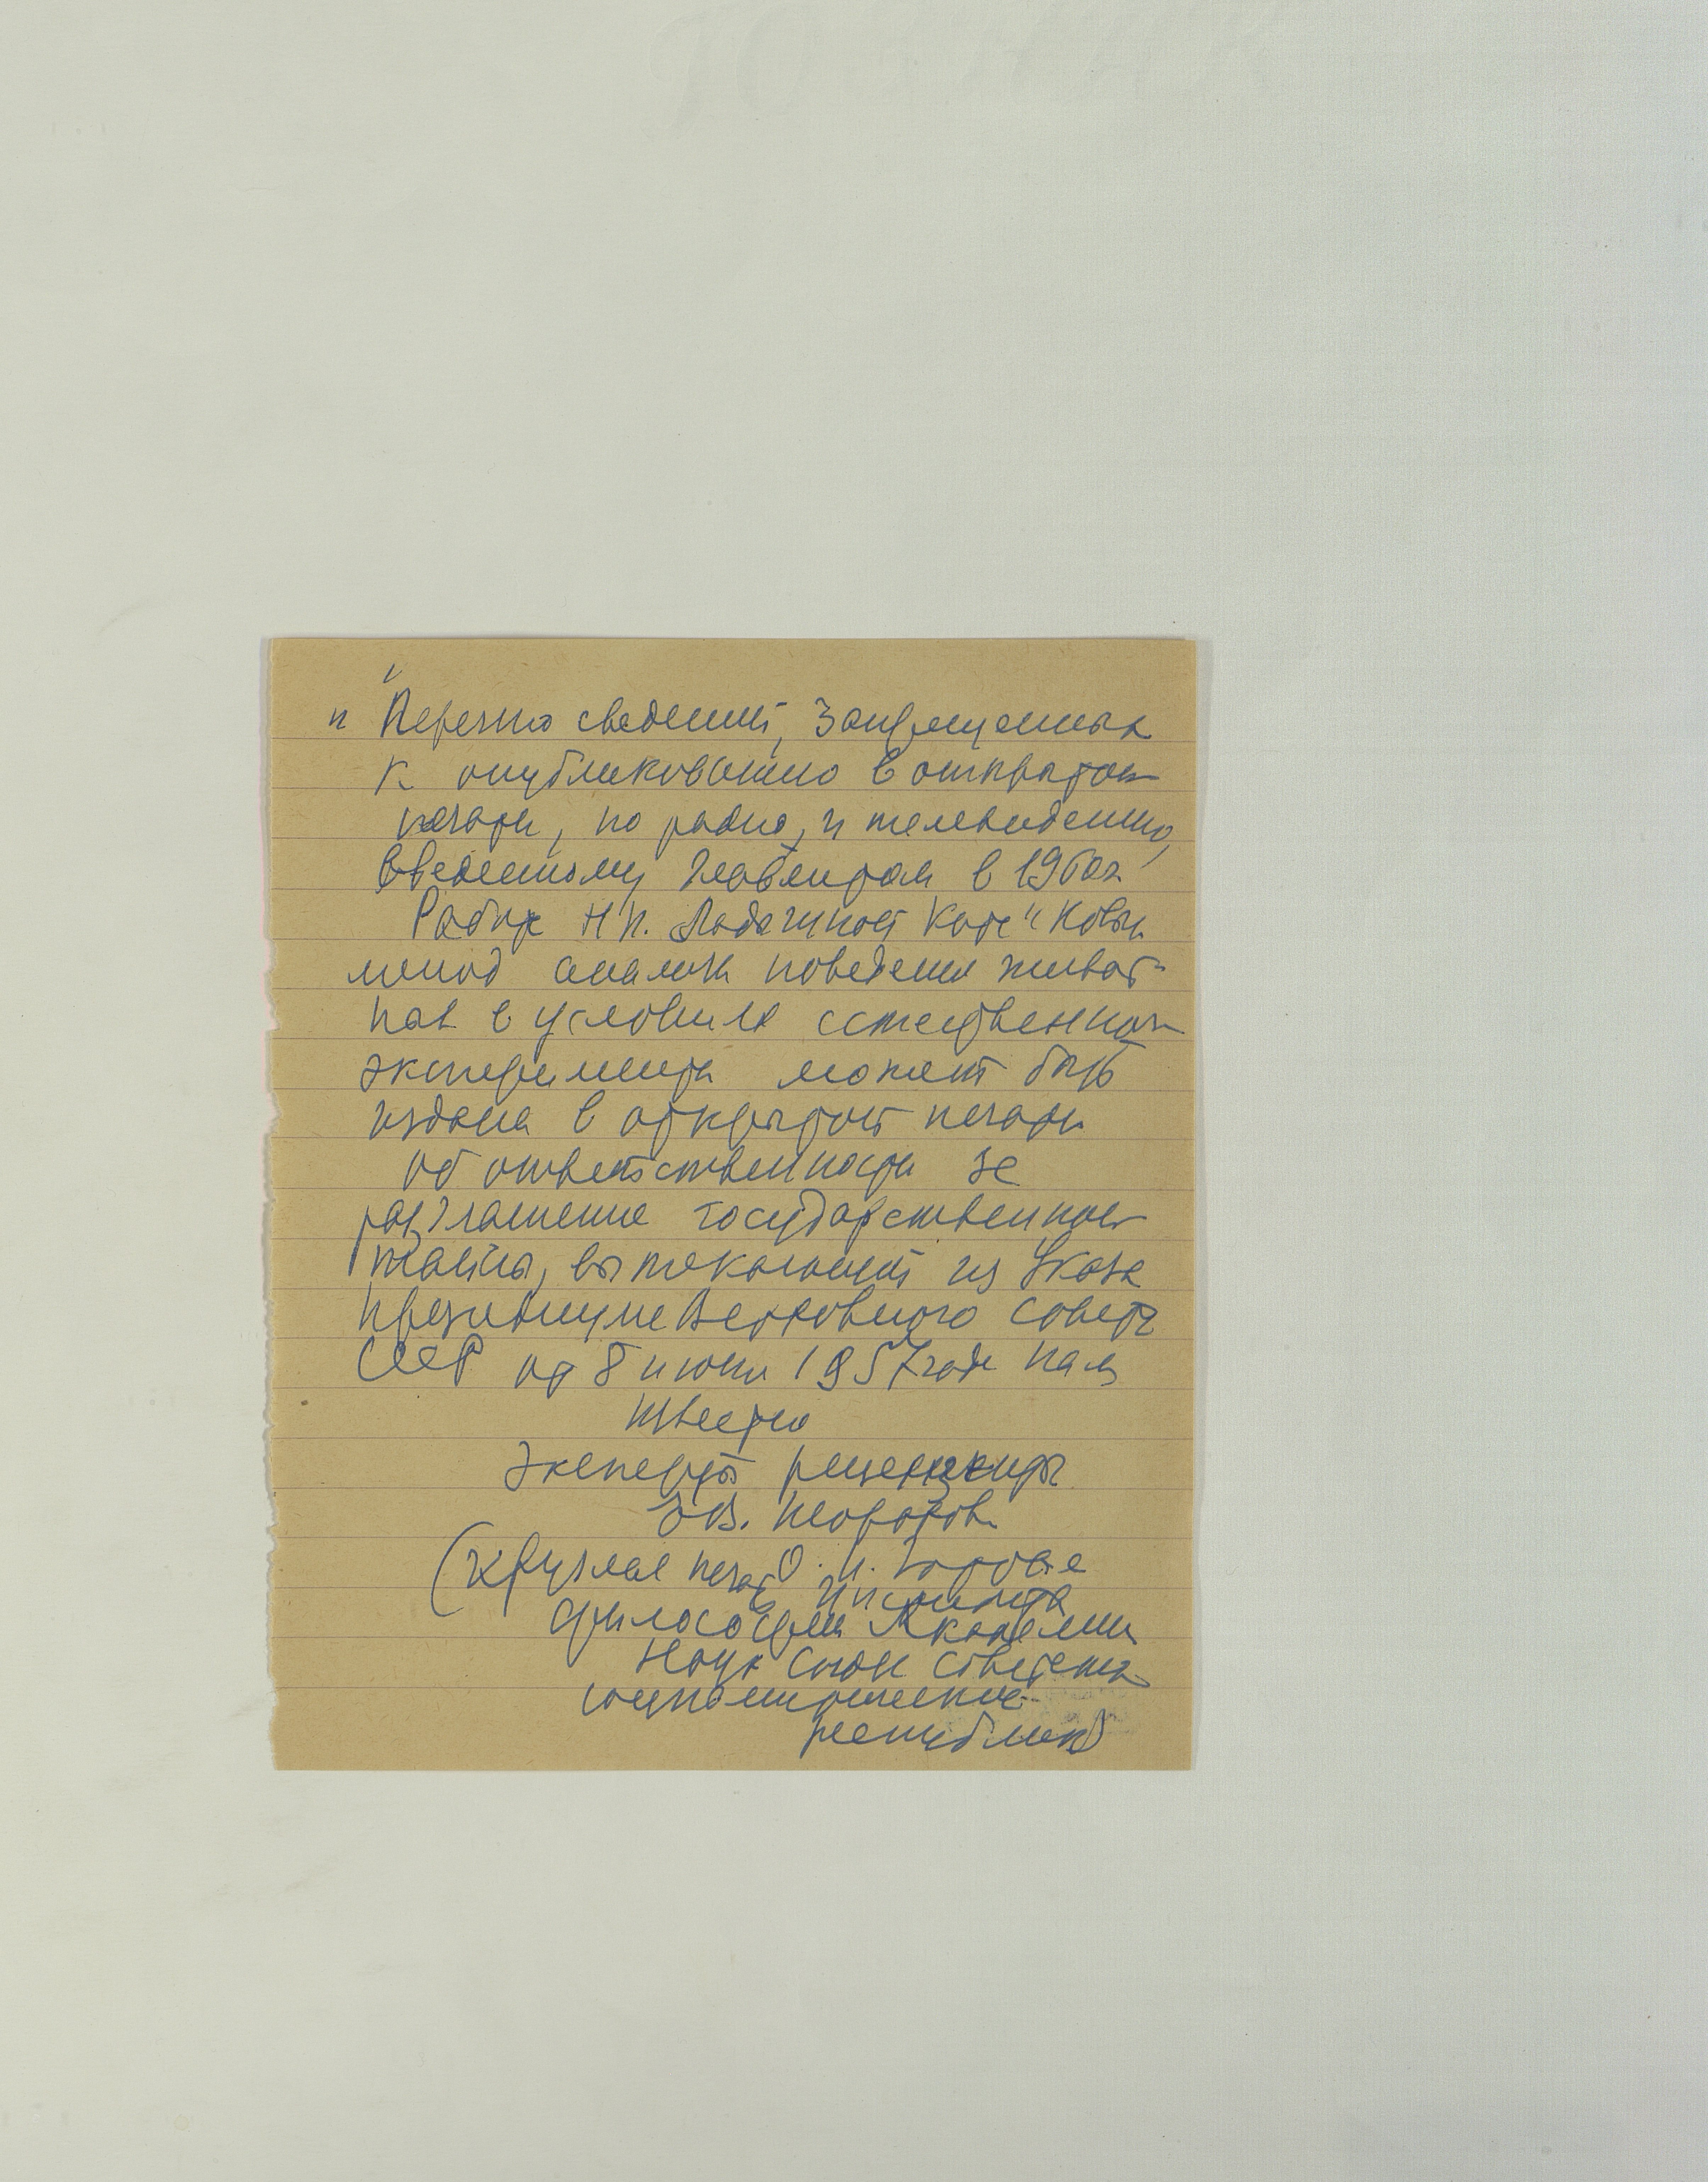 и "Перечню сведений, запрещенных
к опубликованию в открытой
печати, по радио, и телевидению,
введенному Главлитом в 1960г.
Работа Н.Н. Ладыгиной Котс "Новый
метод анализа поведения живот-
ных в условиях естественного
эксперимента может быть
издана в открытой печати
об ответственности за
разглашение государственной
тайны, вытекающий из Указа
Президиума Верховного Совета
СССР от 8 июня 1957 года нам
известно
Эксперты рецензенты
О.И.
(Круглая печать Института
философии Академии
Наук Союза Советских
социалистических
республик)